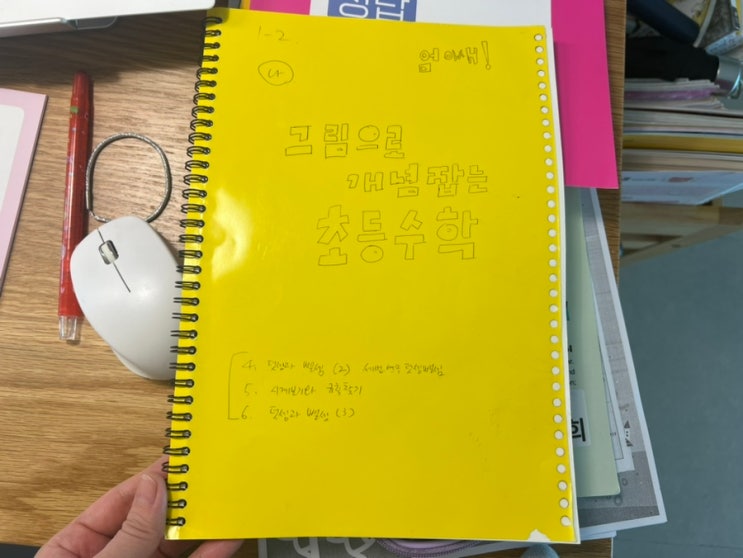 1-2.
나
엄마쌤!
그림으로
개념잡는
초등수학
4. 덧셈과 뺄셈 (2) 세 번에 덧셈뺄셈
5. 시계보기와 규칙찾기
6. 덧셈과 뺄셈 (3)
회